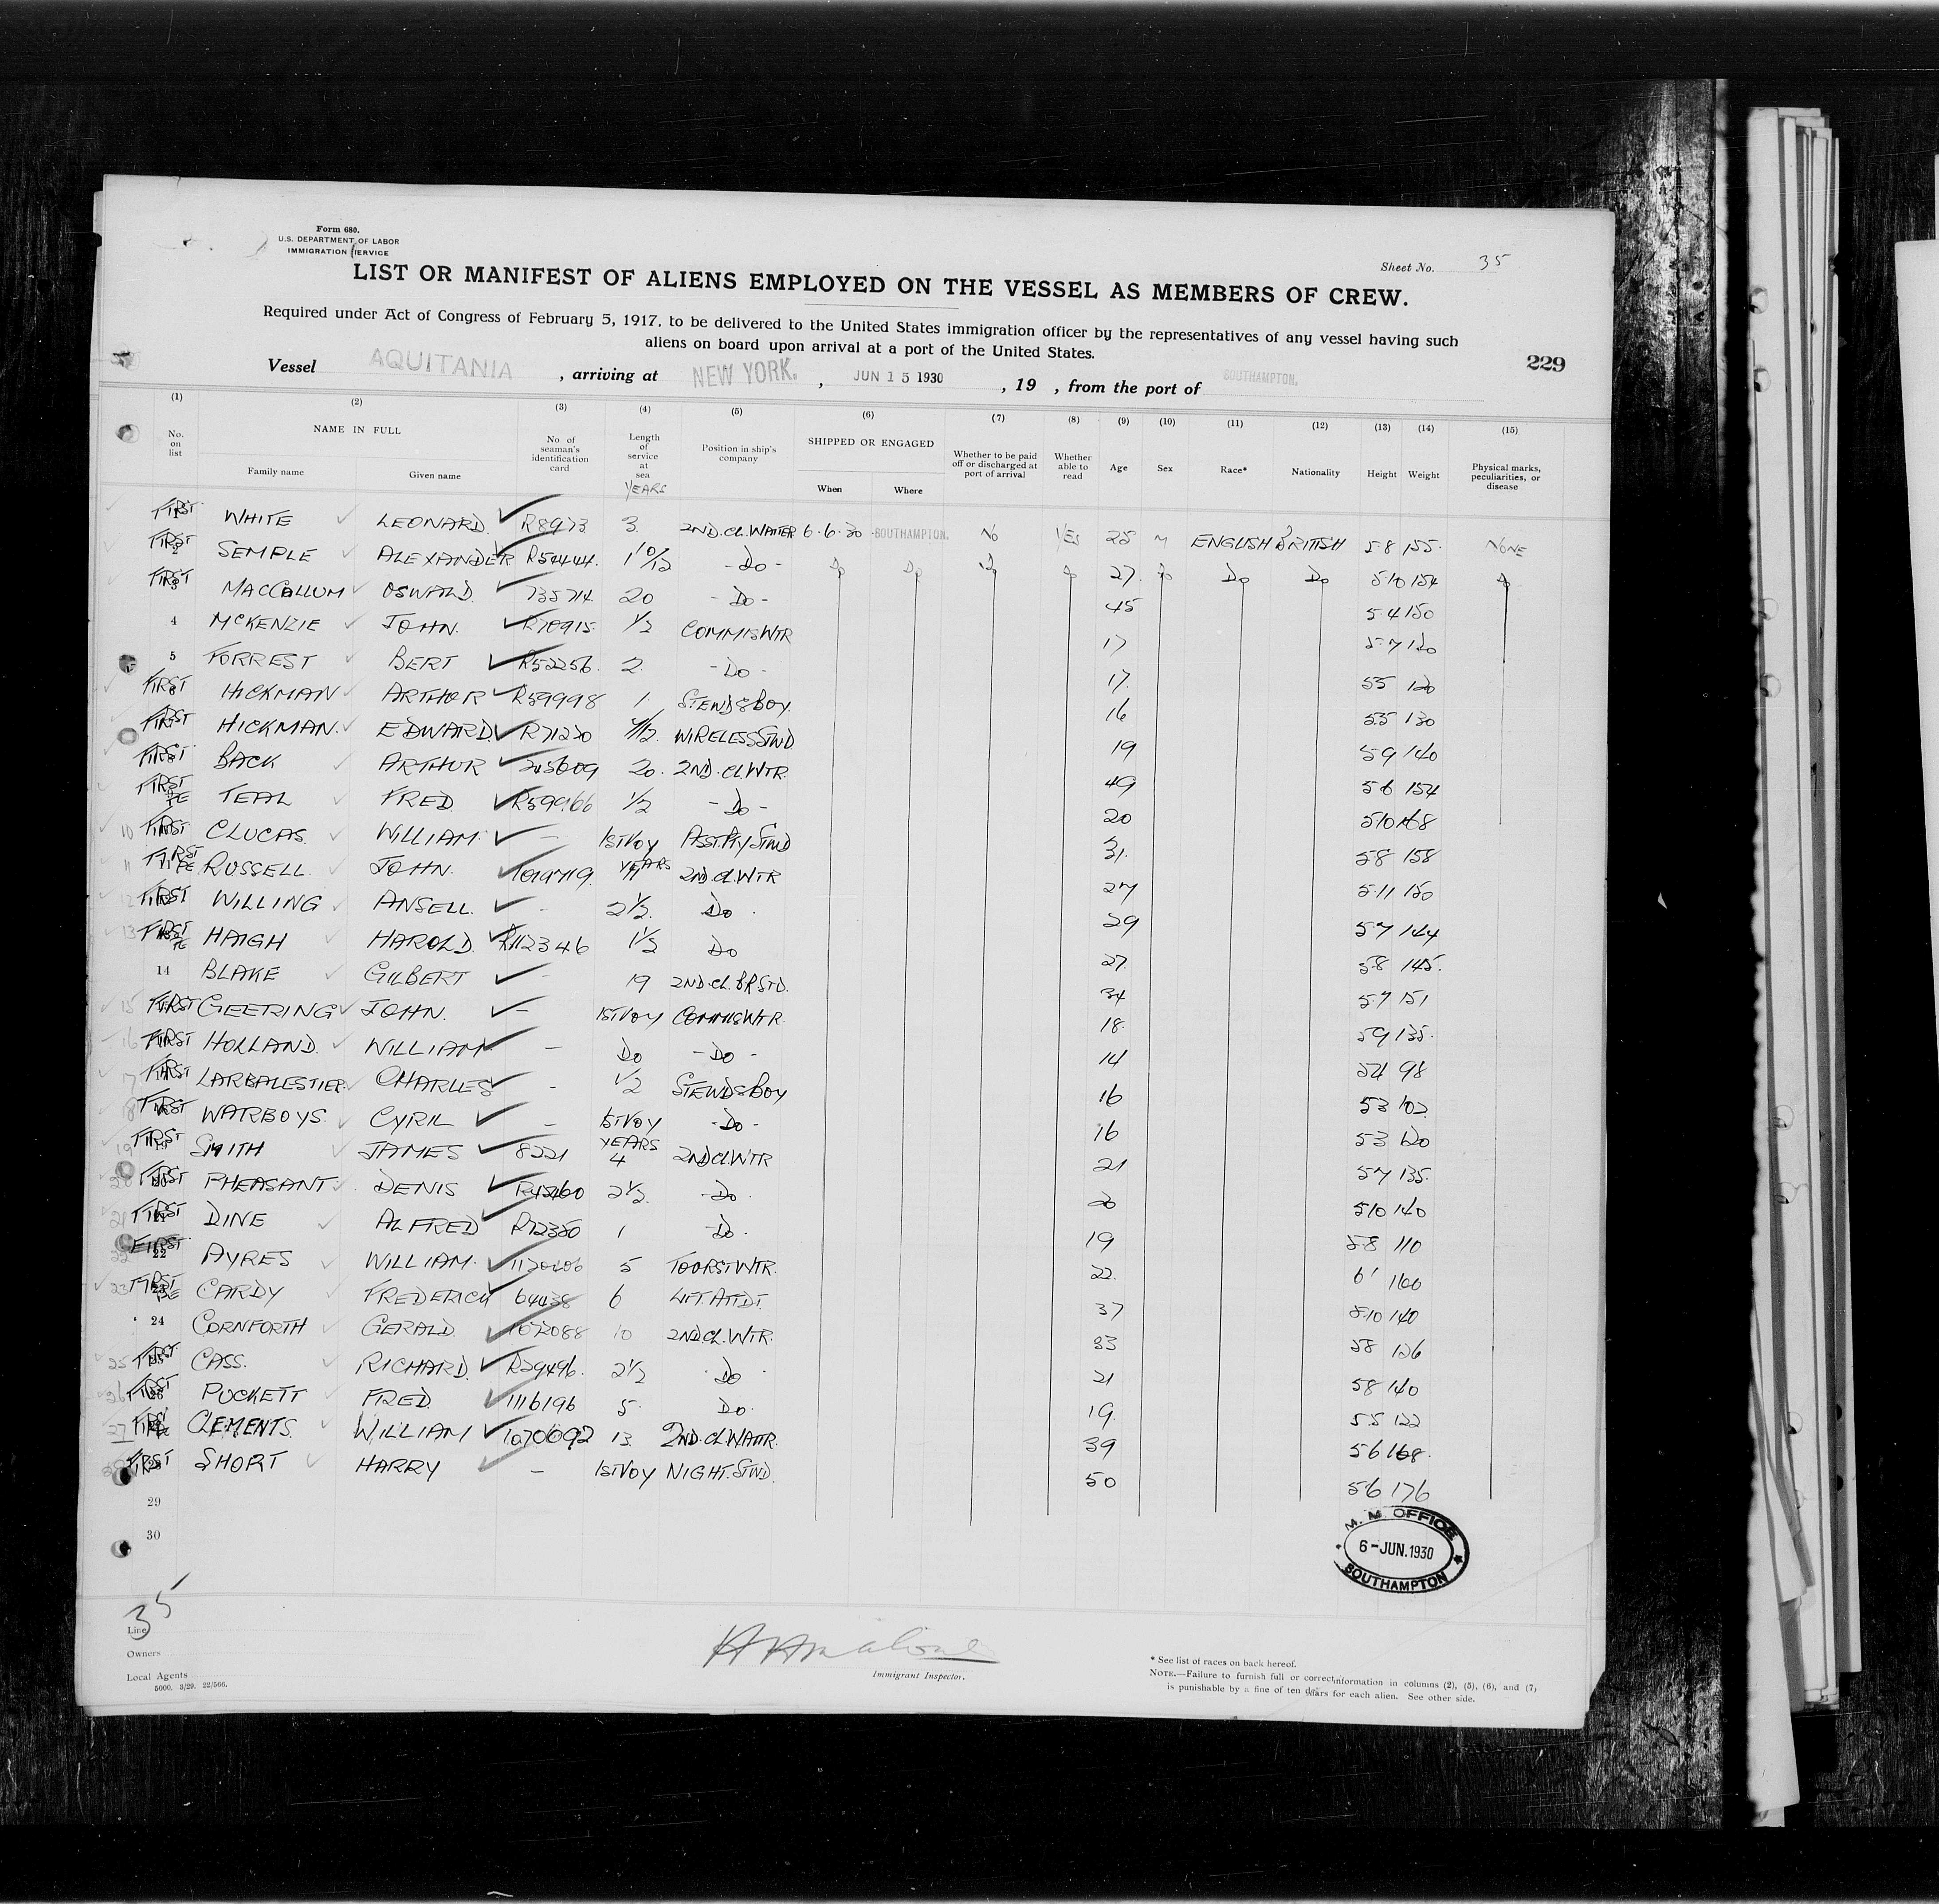 Form 680.
U.S. DEPARTMENT OF LABOR
IMMIGRATION SERVICE
Sheet No. 35
LIST OR MANIFEST OF ALIENS EMPLOYED ON THE VESSEL AS MEMBERS OF CREW.
Required under Act of Congress of February 5, 1917, to be delivered to the United States immigration officer by the representatives of any vessel having such
aliens on board upon arrival at a port of the United States.
229
Vessel AQUITANIA, arriving at NEW YORK., JUN 15 1930, 19 , from the port of SOUTHAMPTON.
(1) (2) (3) (4) (5) (6) (7) (8) (9) (10) (11) (12) (13) (14) (15)
No. on list NAME IN FULL Family name Given name No. of seaman's identification card Length of service at sea YEARS Position in ship's company SHIPPED OR ENGAGED When Where Whether to be paid off or discharged at port of arrival Whether able to read Age Sex Race* Nationality Height Weight Physical marks, peculiarities, or disease
FIRST WHITE LEONARD. R8973 3. 2ND.CL.WAITER 6.6.30 SOUTHAMPTON. NO YES 25 M ENGLISH BRITISH 5.8 155. NONE
FIRST SEMPLE ALEXANDER R54444. 1 10/12 -DO- DO DO DO DO 27. DO DO DO 5.10 154 DO
FIRST MACCALLUM OSWALD. 735714. 20 -DO- 45 5.4 150
4 McKENZIE JOHN. R70915. 1/2 COMMIS WTR 17 5.7 120
5 FORREST BERT R52256. 2. -DO- 17. 55 120
FIRST HICKMAN ARTHUR R59998 1 STEWDS BOY. 16 5.5 130
FIRST HICKMAN. EDWARD. R71220 WIRELESS STWD 19 59 140
FIRST BACK ARTHUR 20. 2ND.CL.WTR. 49 5.6 154
FIRST TEAL FRED R59966 1/2 -DO- 20 510 168
10 FIRST CLUCAS. WILLIAM. - 1ST VOY ASST.PTY STWD 31. 58 158
11 FIRST RUSSELL. JOHN. YEARS 2ND.CL.WTR 27 5.11 150
12 FIRST WILLING ANSELL. - 2 1/2. DO. 29 57 144
13 FIRST HAIGH HAROLD. R112346 1/2 DO 27. 58 145.
14 BLAKE GILBERT - 19 2ND.CL.B.R.STD. 34 57 151
15 FIRST GEERING JOHN. - 1ST VOY COMMIS WTR. 18. 59 135.
16 FIRST HOLLAND. WILLIAM - DO -DO- 14 54 98
17 FIRST LARBALESTIER. CHARLES - 1/2 STEWDS BOY 16 53 102.
18 FIRST WARBOYS. CYRIL - 1ST VOY -DO- 16 53 120
19 FIRST SMITH JAMES 8221 YEARS 4 2ND CL WTR 21 57 135.
20 FIRST PHEASANT DENIS 2 1/2. -DO. 20 510 140
21 FIRST DINE ALFRED R72350 1 -DO. 19 5.8 110
22 FIRST AYRES WILLIAM. 5 TOURST WTR. 22. 6' 160
23 FIRST CARDY FREDERICK 64438 6 LIFT.ATTDT. 37 5.10 140
24 CORNFORTH GERALD. 1072088 10 2ND.CL.WTR. 33 58 126
25 FIRST CASS. RICHARD. R29496. 2 1/2 DO 21 58 140
26 FIRST PUCKETT FRED. 1116196 5. DO. 19. 5.5 122
27 FIRST CLEMENTS. WILLIAM 1070692 13. 2ND.CL.WAITR. 39 56 168.
28 FIRST SHORT HARRY - 1ST VOY NIGHT.STWD. 50 5.6 176
29
30
M. M. OFFICE
6-JUN.1930
SOUTHAMPTON
35
Line
Owners
Local Agents
5000. 3/29. 22/566.
Immigrant Inspector.
* See list of races on back hereof.
NOTE.—Failure to furnish full or correct information in columns (2), (5), (6), and (7)
is punishable by a fine of ten dollars for each alien. See other side.